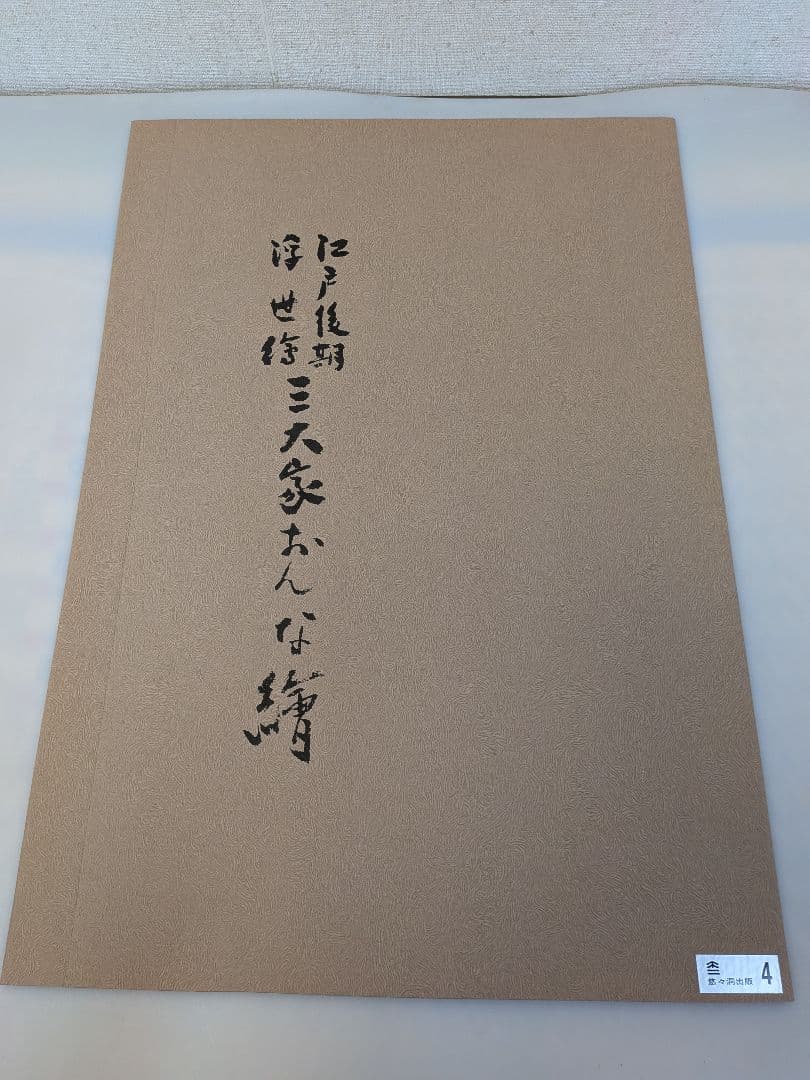 江戸後期
浮世繪
三大家おんな繪
悠々洞出版
4